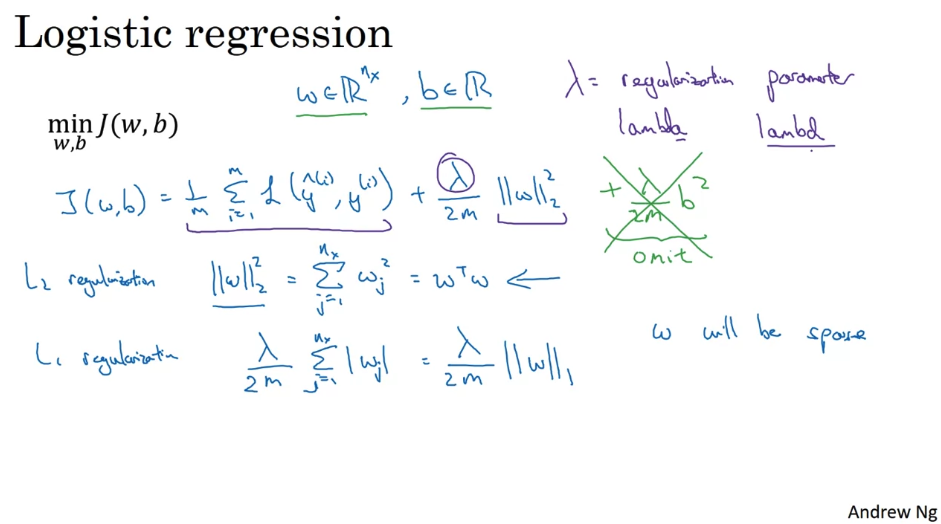 Logistic regression
w ∈ ℝ^{n_x} , b ∈ ℝ
λ = regularization parameter
lambda lambd
min_{w,b} J(w, b)
J(w,b) = 1/m ∑_{i=1}^{m} ℒ(ŷ^{(i)}, y^{(i)}) + λ/2m ||w||_2^2 + λ/2m b^2
omit
L_2 regularization ||w||_2^2 = ∑_{j=1}^{n_x} w_j^2 = w^T w ←
L_1 regularization λ/2m ∑_{j=1}^{n_x} |w_j| = λ/2m ||w||_1
w will be sparse
Andrew Ng